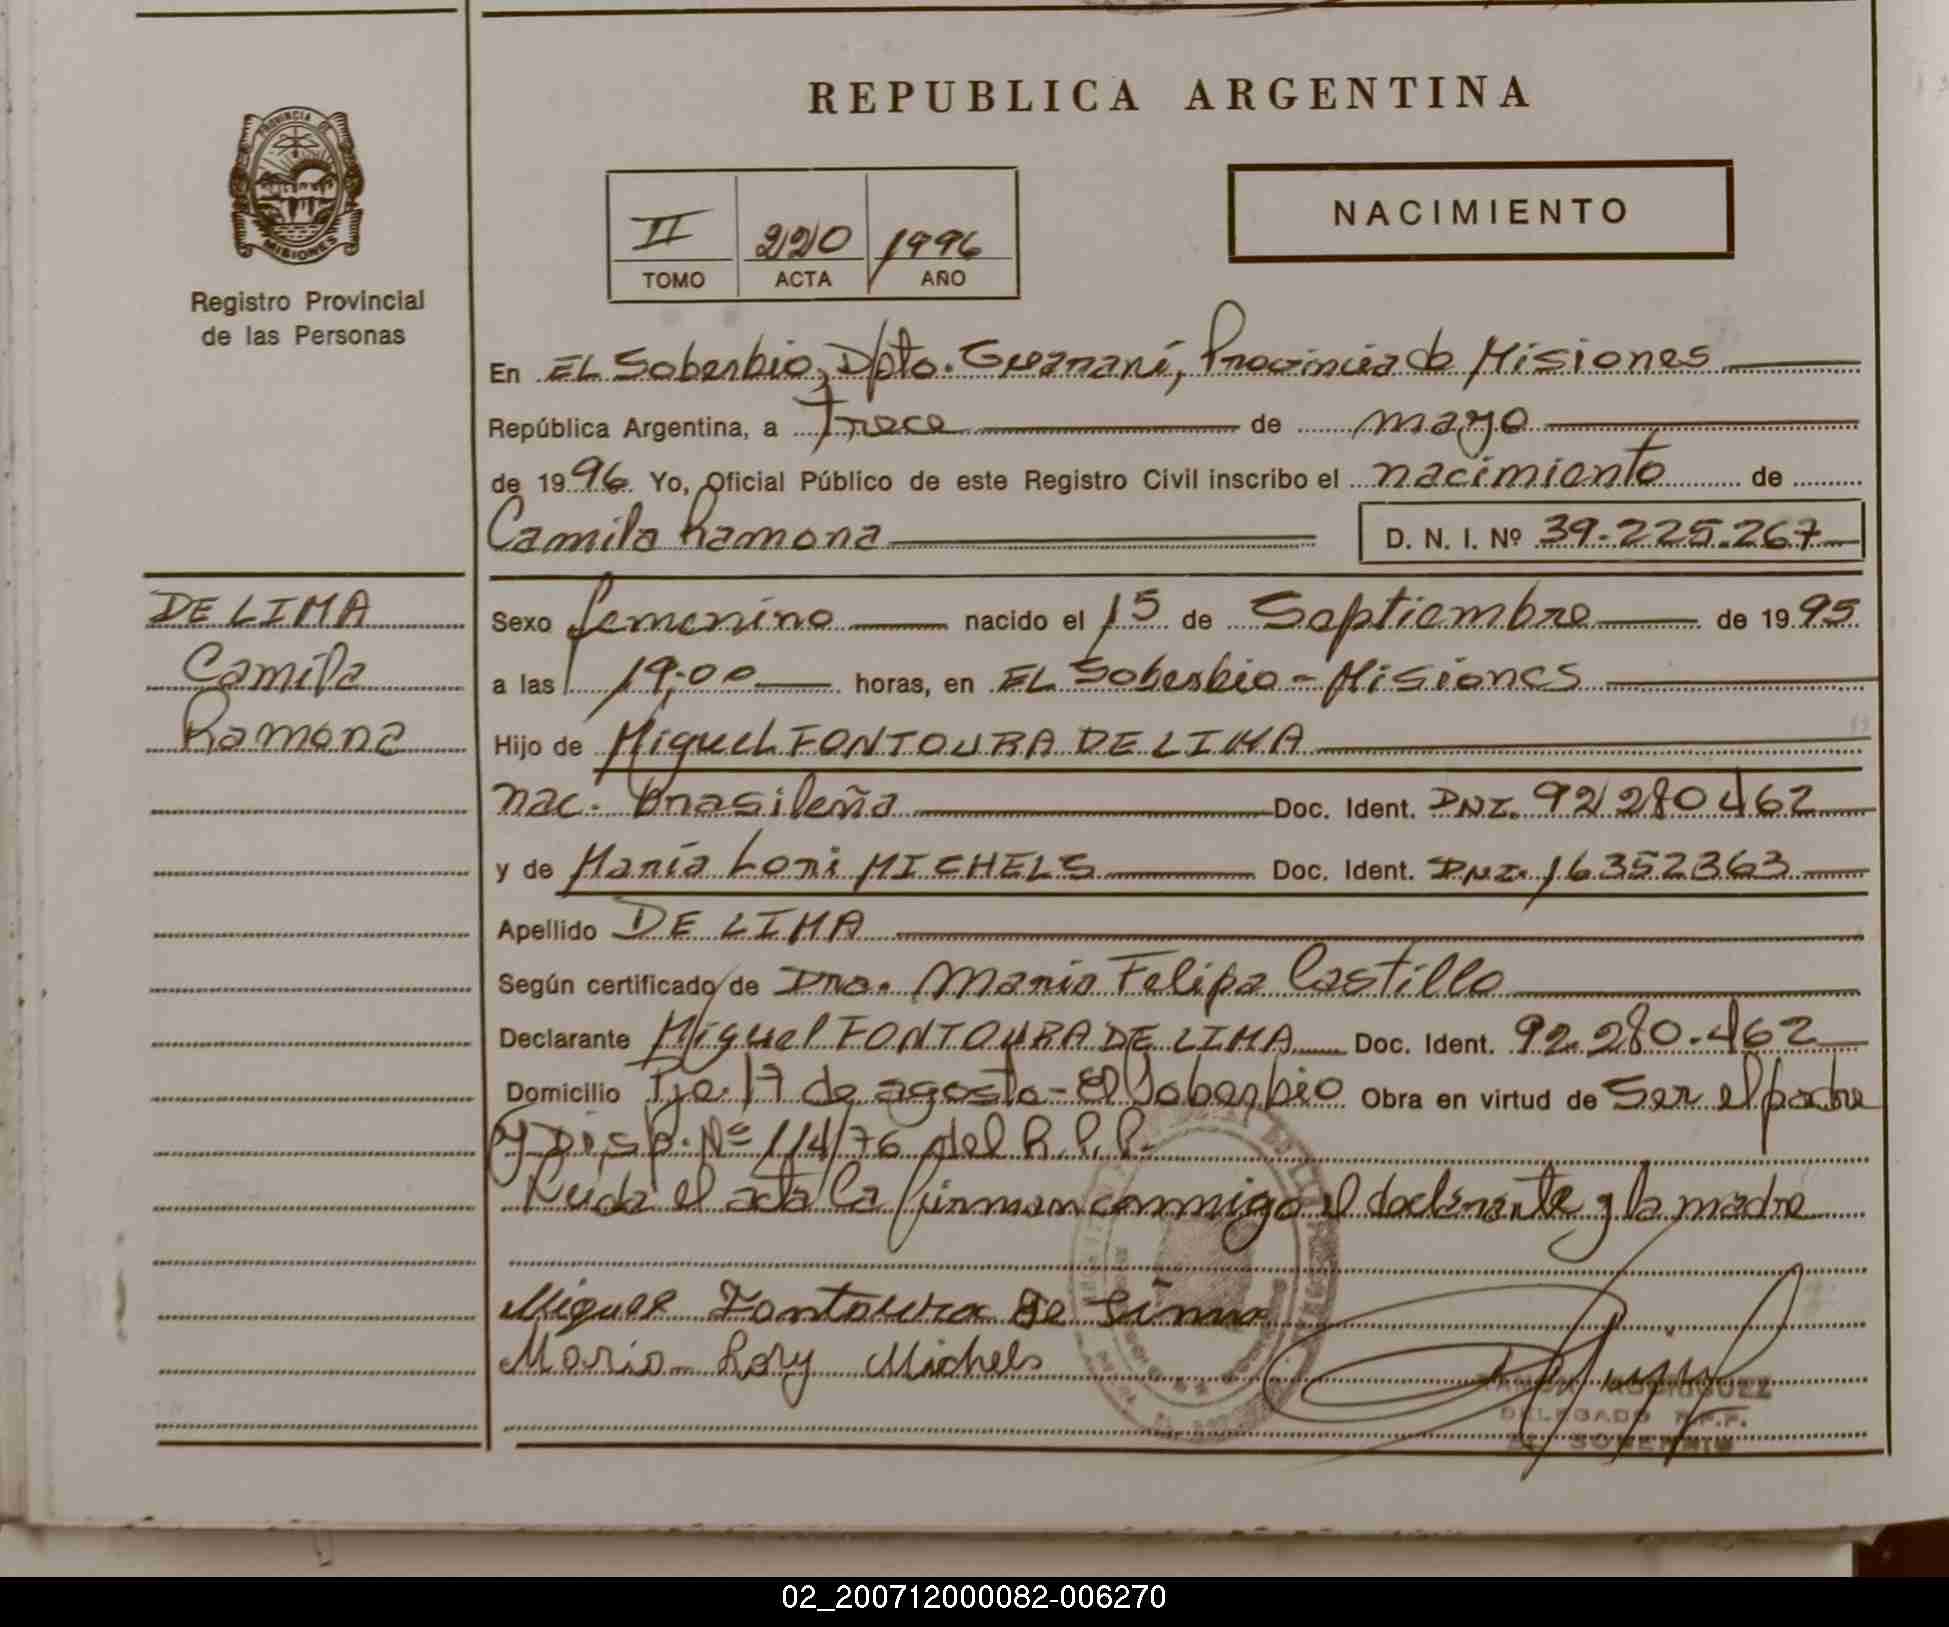 REPUBLICA ARGENTINA
PROVINCIA DE
MISIONES
Registro Provincial
de las Personas
II 220 1996
TOMO ACTA AÑO
NACIMIENTO
En EL Soberbio, Dpto. Guaraní, Provincia de Misiones
República Argentina, a Trece de mayo
de 1996 Yo, Oficial Público de este Registro Civil inscribo el nacimiento de
Camila Ramona D. N. I. Nº 39.225.267
DE LIMA
Camila
Ramona
Sexo femenino nacido el 15 de Septiembre de 1995
a las 19:00 horas, en EL Soberbio - Misiones
Hijo de Miguel FONTOURA DE LIMA
nac. brasileña Doc. Ident. DNI. 92 280 462
y de María Loni MICHELS Doc. Ident. DNI. 16352363
Apellido DE LIMA
Según certificado de Dra. Maria Felipa Castillo
Declarante Miguel FONTOURA DE LIMA Doc. Ident. 92.280.462
Domicilio Pje. 17 de agosto - El Soberbio Obra en virtud de Ser el padre
y Disp. Nº 114/76 del R.P.P.
Leida el acta la firman conmigo el declarante y la madre
Miguel Fontoura de Lima
Maria Lory Michels
RAMON RODRIGUEZ
DELEGADO R.P.P.
EL SOBERBIO
02_200712000082-006270